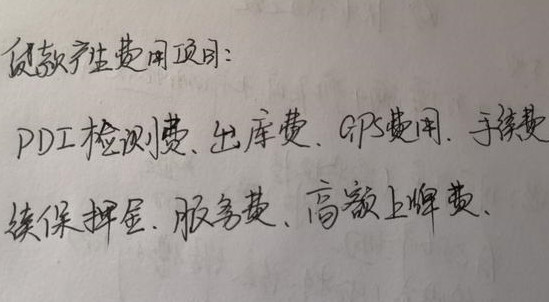 贷款产生费用项目:
PDI检测费、出库费、GPS费用、手续费
续保押金、服务费、高额上牌费、